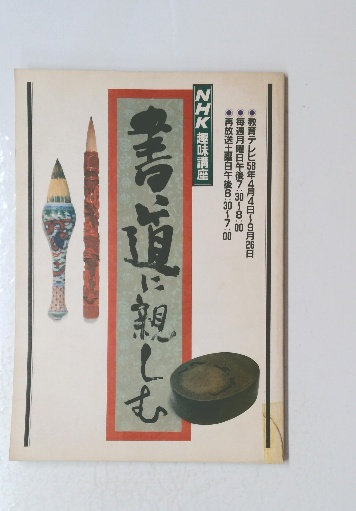 ●教育テレビ58年4月4日〜9月26日
●毎週月曜日午後7:30〜8:00
●再放送土曜日午後6:30〜7:00
NHK趣味講座
書道に親しむ